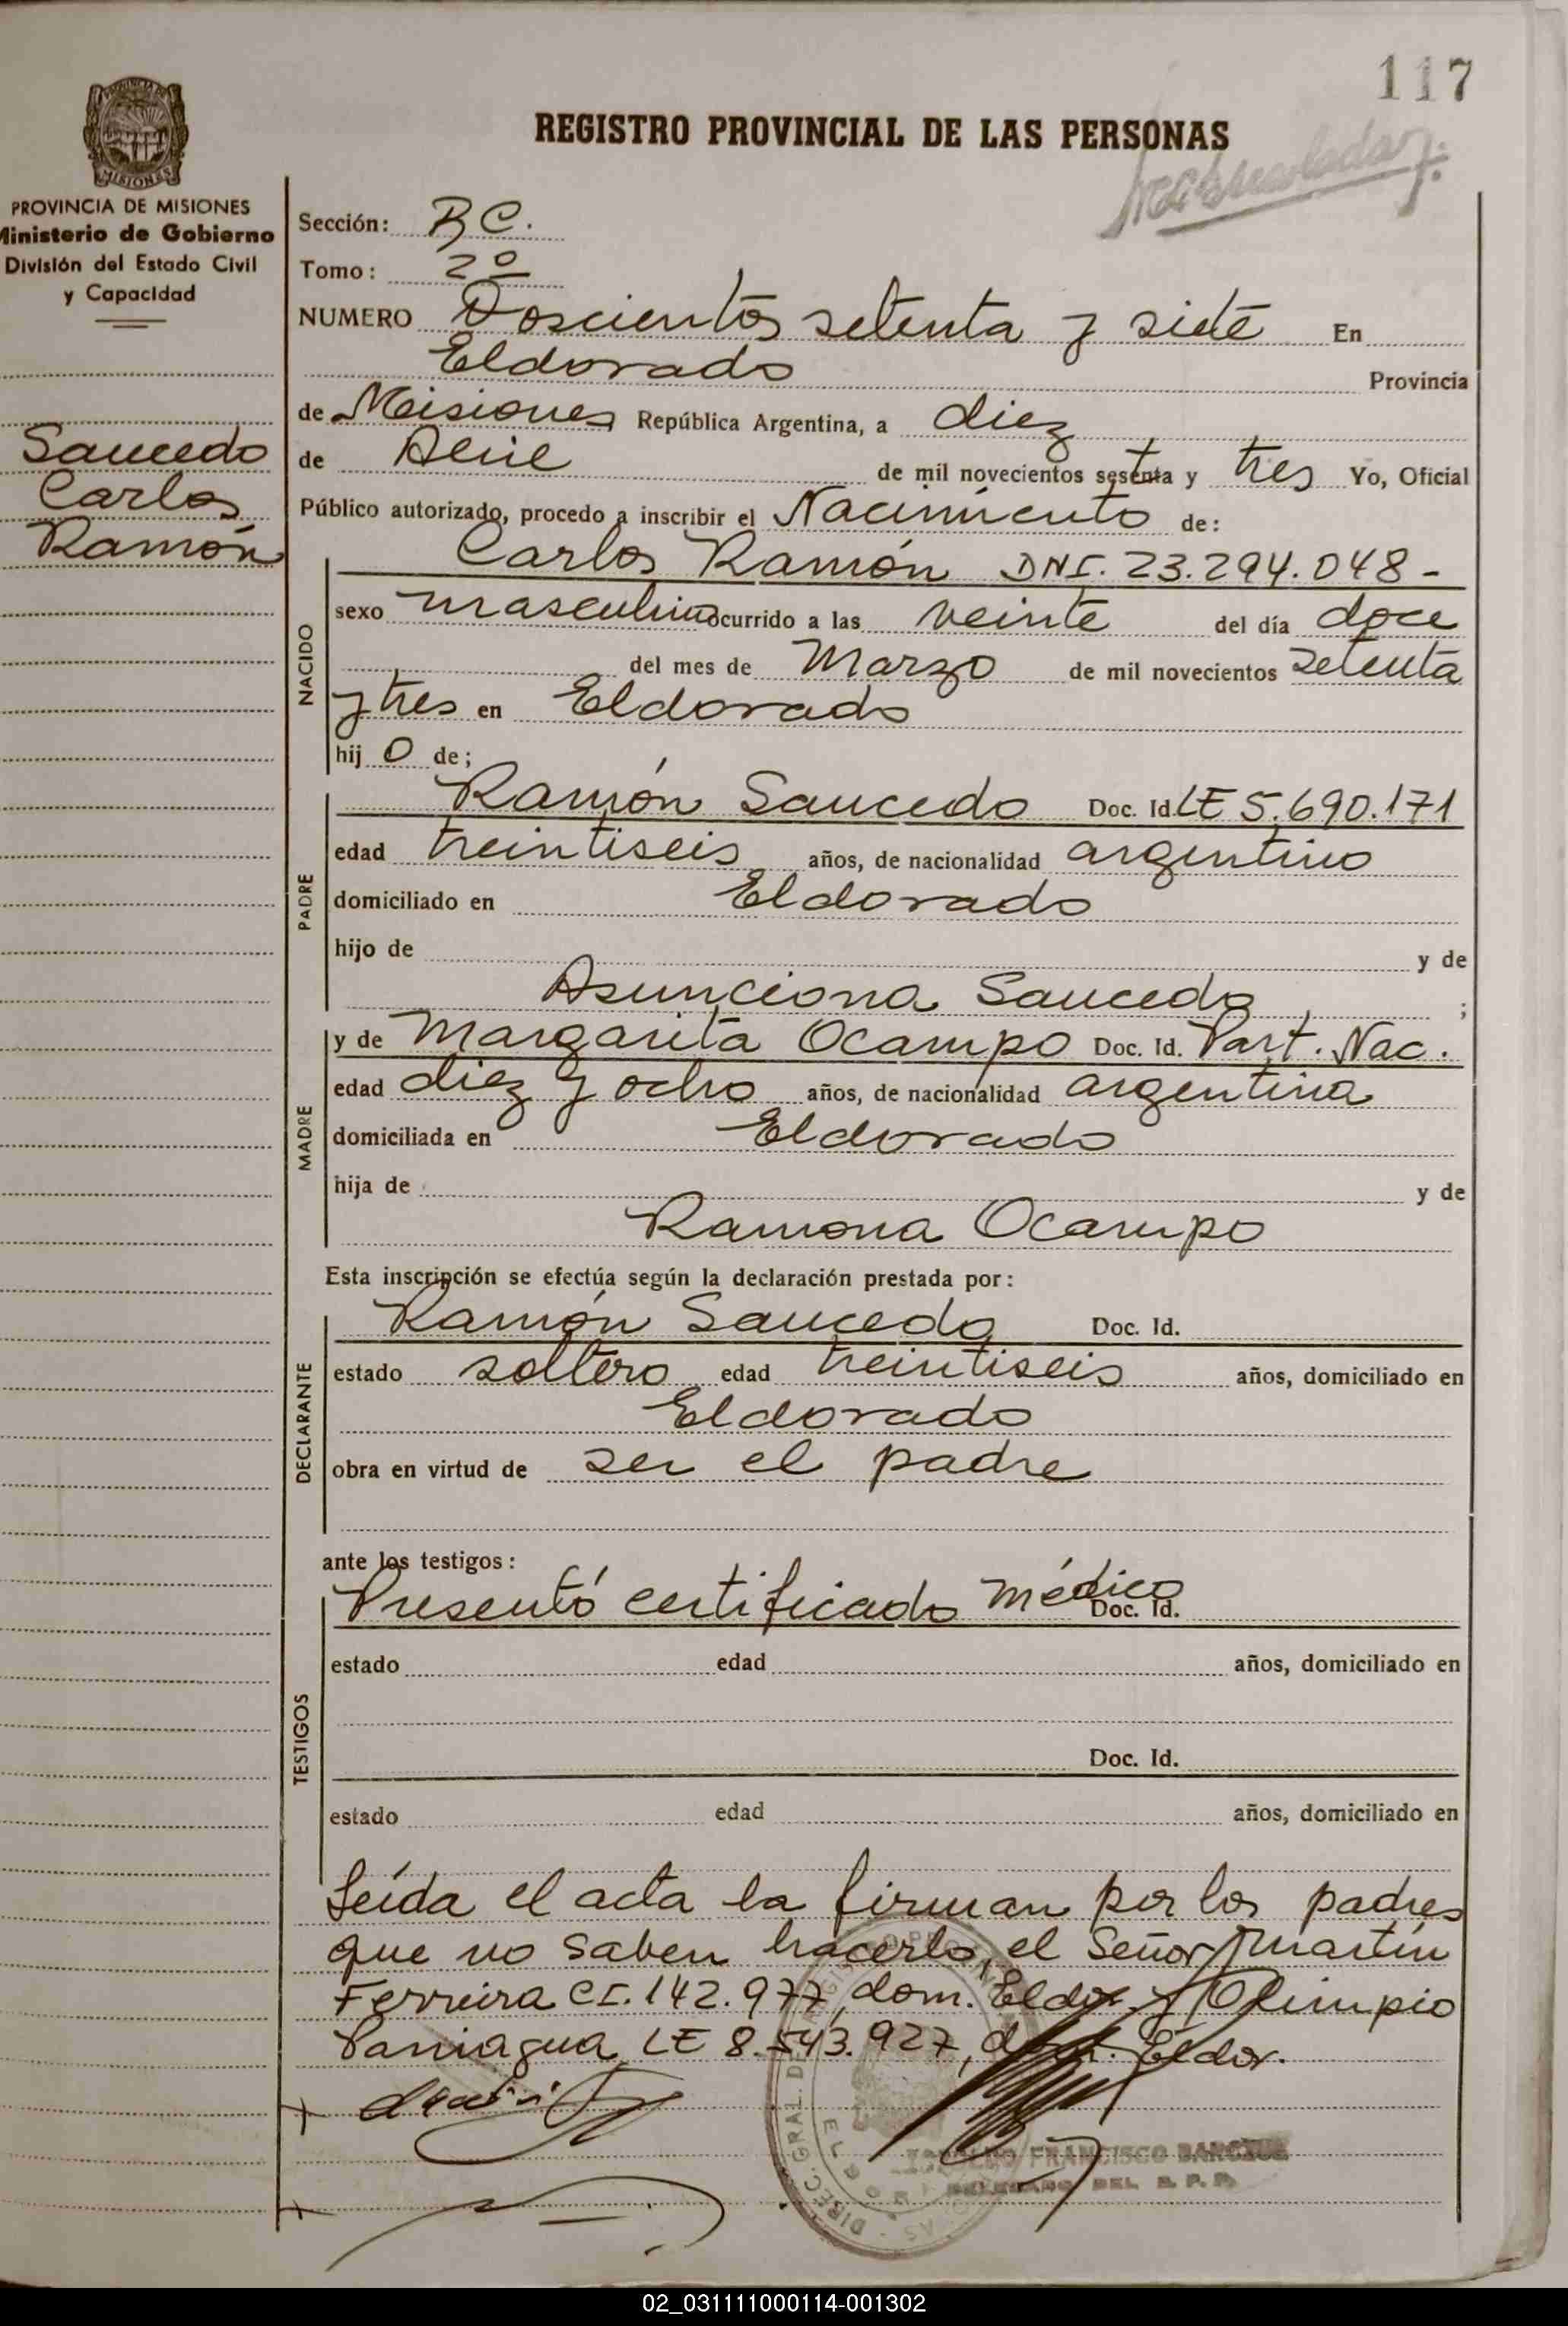 117
REGISTRO PROVINCIAL DE LAS PERSONAS
PROVINCIA DE MISIONES
Ministerio de Gobierno
División del Estado Civil
y Capacidad
Saucedo
Carlos
Ramón
Sección: B C.
Tomo: 2º
NUMERO Doscientos setenta y siete En
Eldorado Provincia
de Misiones República Argentina, a diez
de Abril de mil novecientos sesenta y tres Yo, Oficial
Público autorizado, procedo a inscribir el Nacimiento de:
NACIDO
Carlos Ramón DNI. 23.294.048-
sexo masculino ocurrido a las veinte del día doce
del mes de Marzo de mil novecientos setenta
y tres en Eldorado
hij o de;
PADRE
Ramón Saucedo Doc. Id. LE 5.690.171
edad treintiseis años, de nacionalidad argentino
domiciliado en Eldorado
hijo de y de
Asunciona Saucedo ;
MADRE
y de Margarita Ocampo Doc. Id. Part. Nac.
edad diez y ocho años, de nacionalidad argentina
domiciliada en Eldorado
hija de y de
Ramona Ocampo
Esta inscripción se efectúa según la declaración prestada por:
DECLARANTE
Ramón Saucedo Doc. Id.
estado soltero edad treintiseis años, domiciliado en
Eldorado
obra en virtud de ser el padre
ante los testigos:
TESTIGOS
Presentó certificado médico Doc. Id.
estado edad años, domiciliado en
Doc. Id.
estado edad años, domiciliado en
Leída el acta la firman por los padres
que no saben hacerlo, el Señor Martín
Ferreira CI. 142.977, dom. Eldor. y Olimpio
Paniagua LE 8.543.927, dom. Eldor.
FRANCISCO
DELEGADO DEL R. P. P.
02_031111000114-001302